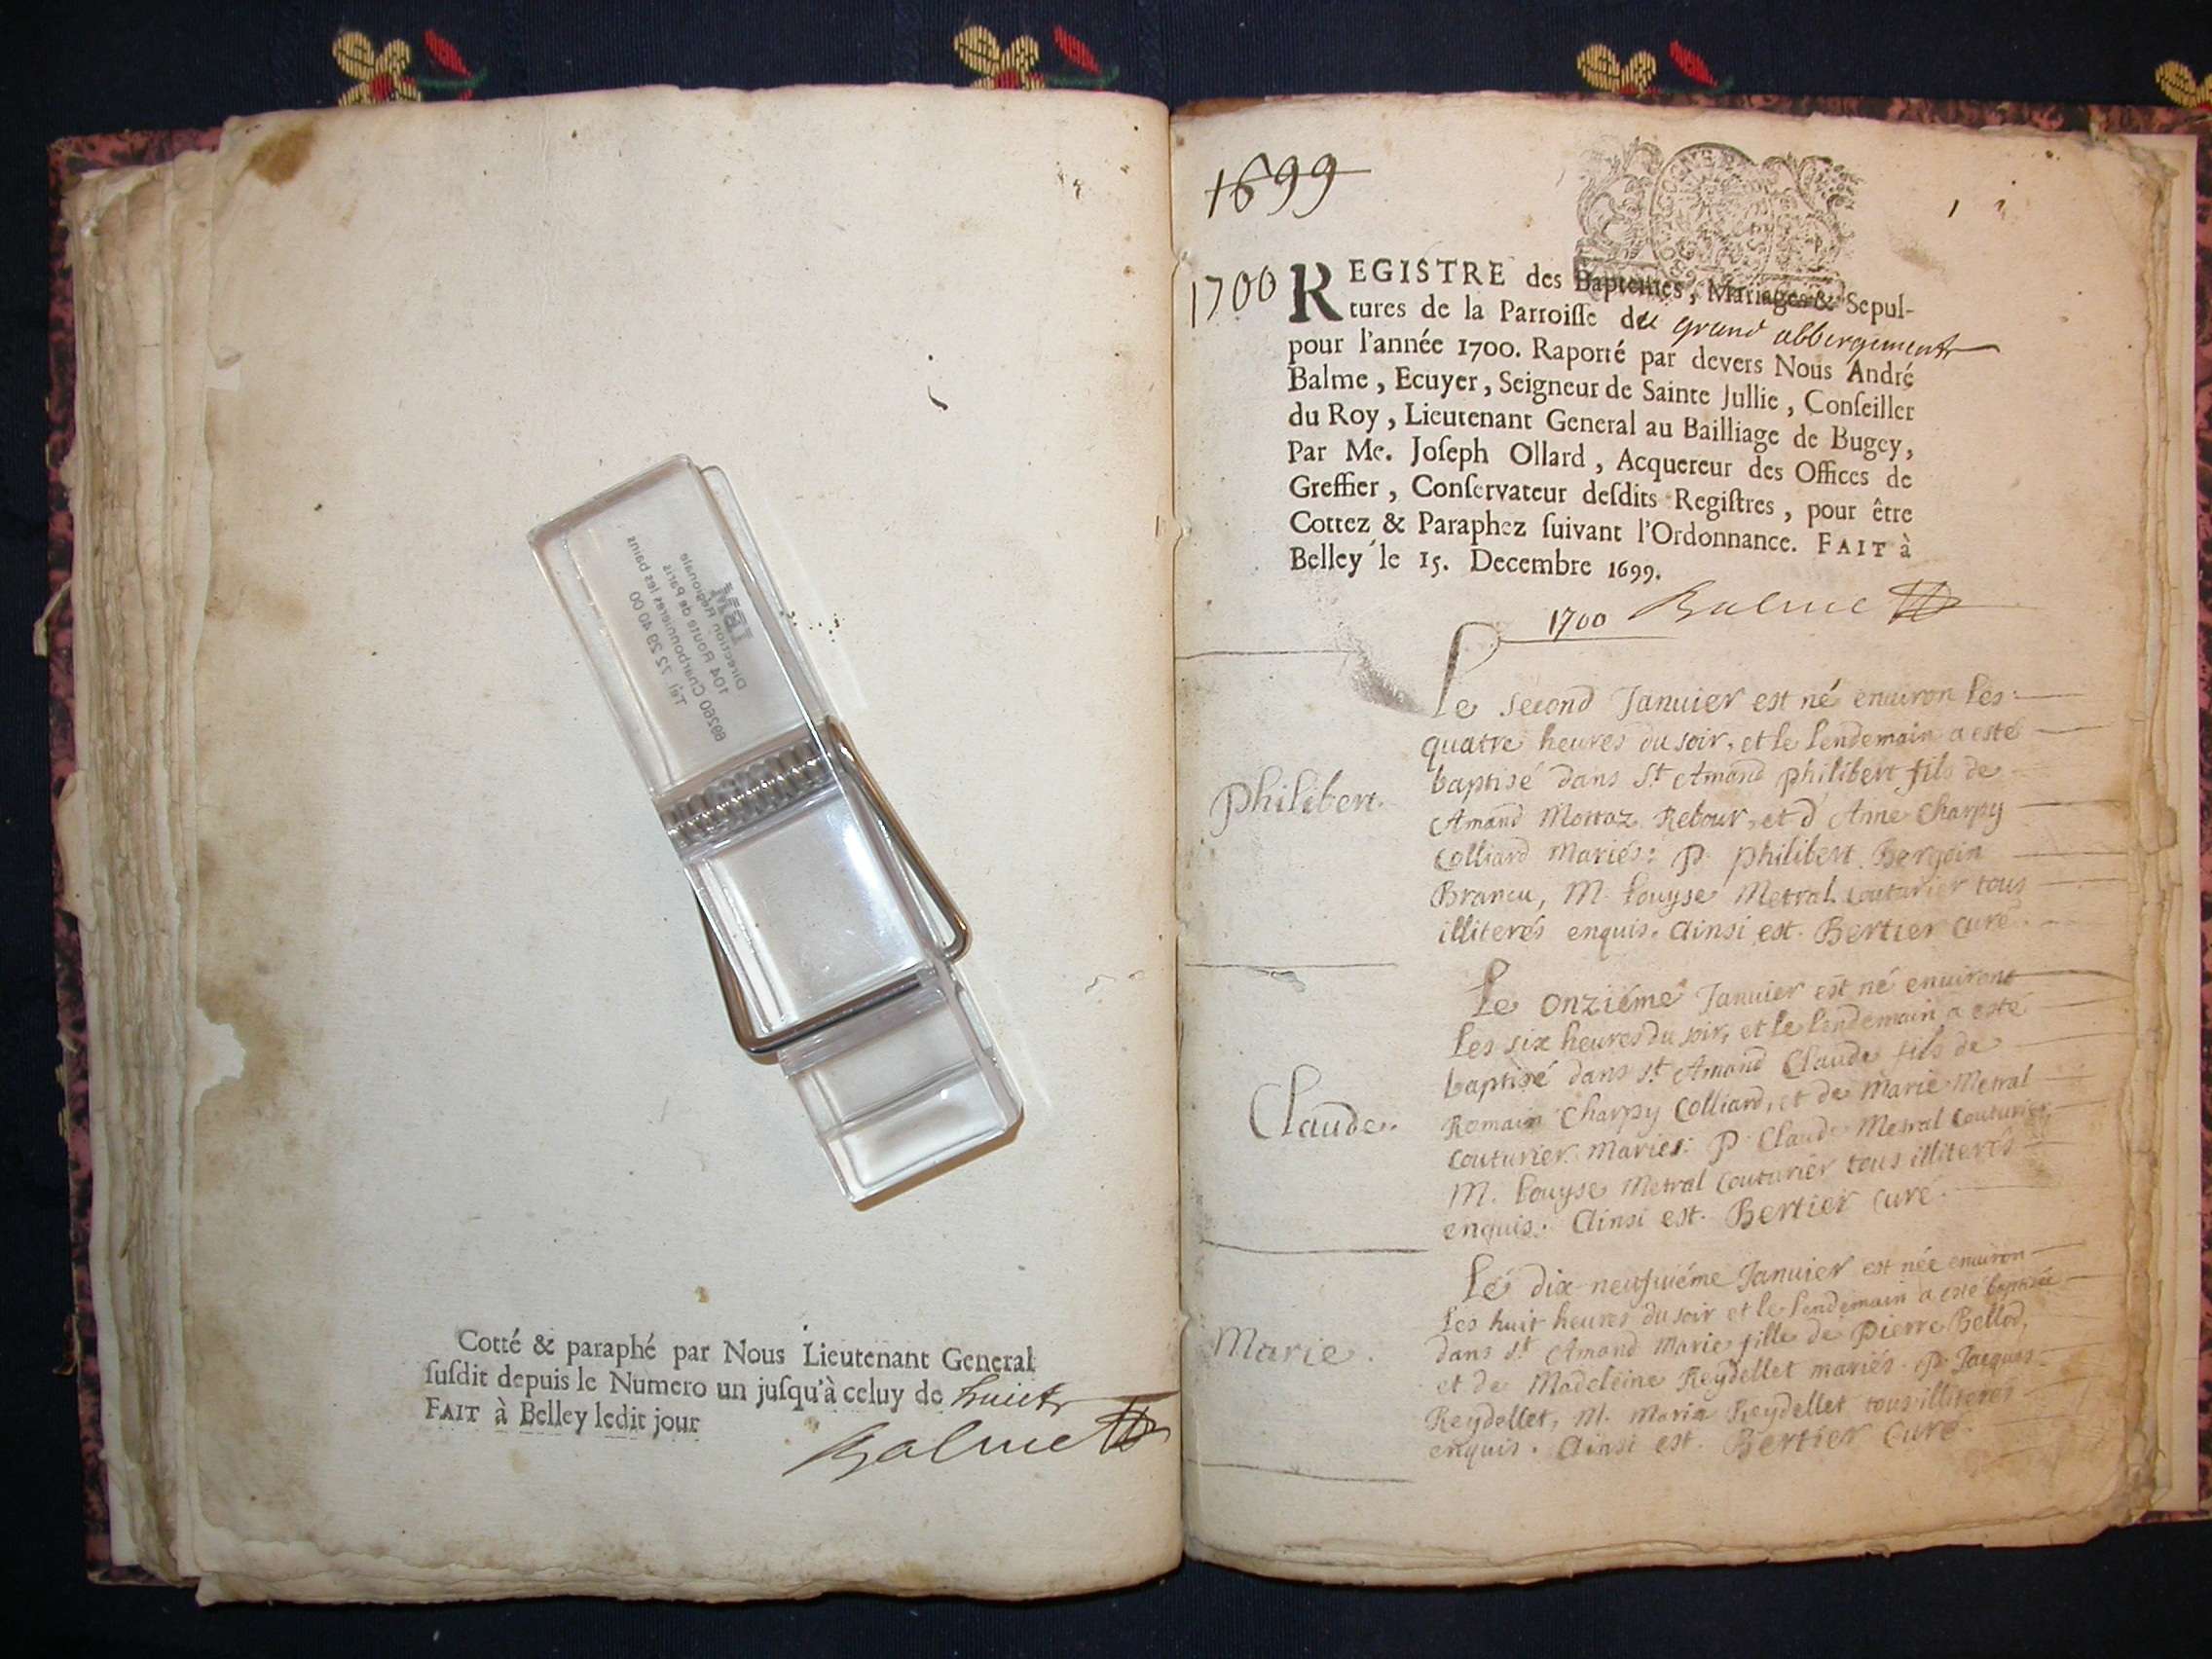 IBM
Direction Régionale
104 Route de Paris
69260 Charbonnieres les bains
Tél 72 29 40 00
Cotté & paraphé par Nous Lieutenant General
ſuſdit depuis le Numero un juſqu'à celuy de huict
FAIT à Belley ledit jour
Balme
1699
1700
REGISTRE des Baptemes, Mariages & Sepul-
tures de la Parroiſſe du grand abbergement
pour l'année 1700. Raporté par devers Nous André
Balme, Ecuyer, Seigneur de Sainte Jullie, Conſeiller
du Roy, Lieutenant General au Bailliage de Bugey,
Par Me. Joſeph Ollard, Acquereur des Offices de
Greffier, Conſervateur deſdits Regiſtres, pour être
Cottez & Paraphez ſuivant l'Ordonnance. FAIT à
Belley le 15. Decembre 1699.
1700 Balme
Philibert.
Le second Januier est né enuiron les
quatre heures du soir, et le lendemain a esté
baptisé dans St Amand philibert fils de
Amand Mottaz Rebour, et d'Anne Charpy
Colliard Mariés: P. philibert Bergoin
Brancu, M. Louyse Metral Couturier tous
illiterés enquis. Ainsi est. Bertier Curé.
Claude.
Le onziéme Januier est né enuiront
les six heures du soir, et le lendemain a esté
baptisé dans St Amand Claude fils de
Romain Charpy Colliard, et de Marie Metral
Couturier Mariés: P. Claude Metral Couturier,
M. Louyse Metral Couturier tous illiterés
enquis. Ainsi est. Bertier Curé.
Marie.
Le dix neufuiéme Januier est née enuiron
les huit heures du soir et le lendemain a esté baptisée
dans St Amand Marie fille de Pierre Bellod,
et de Madeleine Reydellet mariés. P. Jacques
Reydellet, M. Maria Reydellet tous illiterés
enquis. Ainsi est. Bertier Curé.